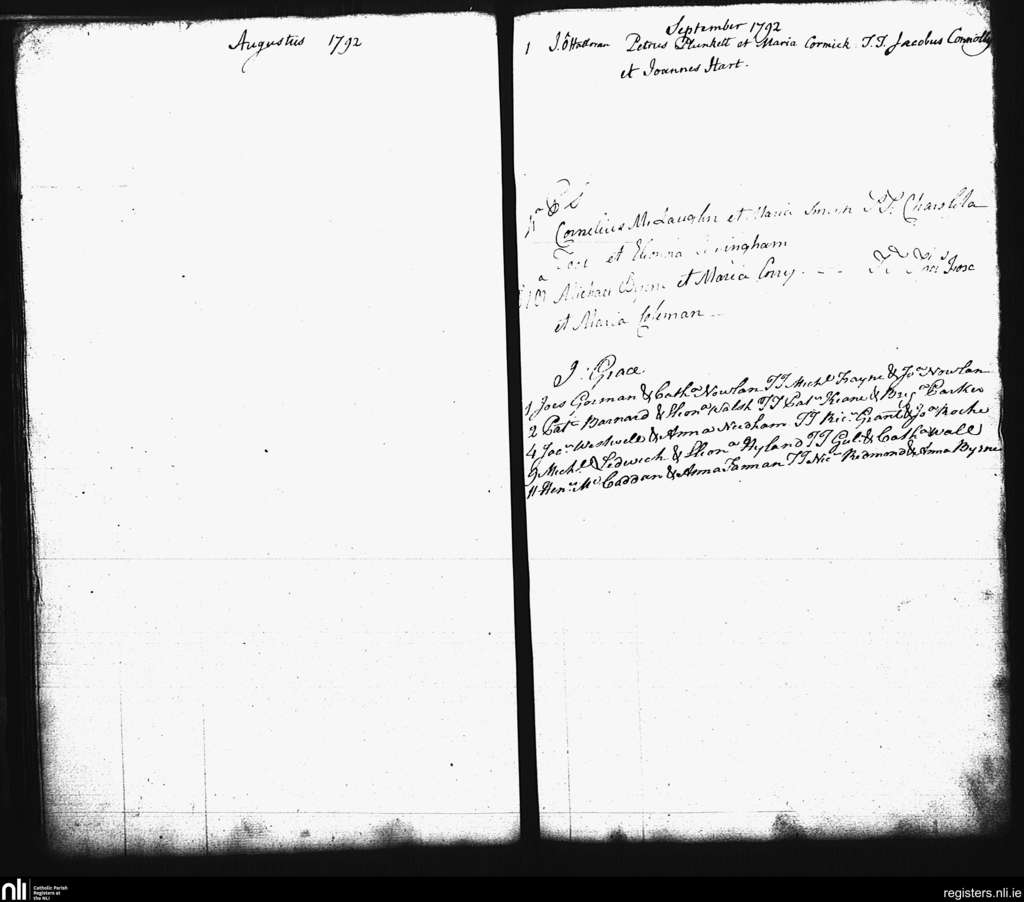 Augustus 1792
September 1792
1 J. O'Halloran Petrus Plunkett et Maria Cormick. T.T. Jacobus Connolly
et Joannes Hart.
Cornelius McLaughn et Maria Smith TT.
et Elionora
10 Michael Byrne et Maria Corry.
et Maria Coleman
J: Grace.
1 Joes Gorman & Catha Nowlan TT Michl Frayne & Joa Nowlan
2 Patt Barnard & Eliona Walsh TT Patt Keane & Brigna Parker
4 Jacus Westwell & Anna Needham TT Ric: Grant & Joa Roche
9 Michl Ledwich & Eliona Hyland TT Gul: & Catha Wall
11 Hen: Mc Caddan & Anna Farnan TT Nic: Redmond & Anna Byrne
nli Catholic Parish
Registers at
the NLI
registers.nli.ie